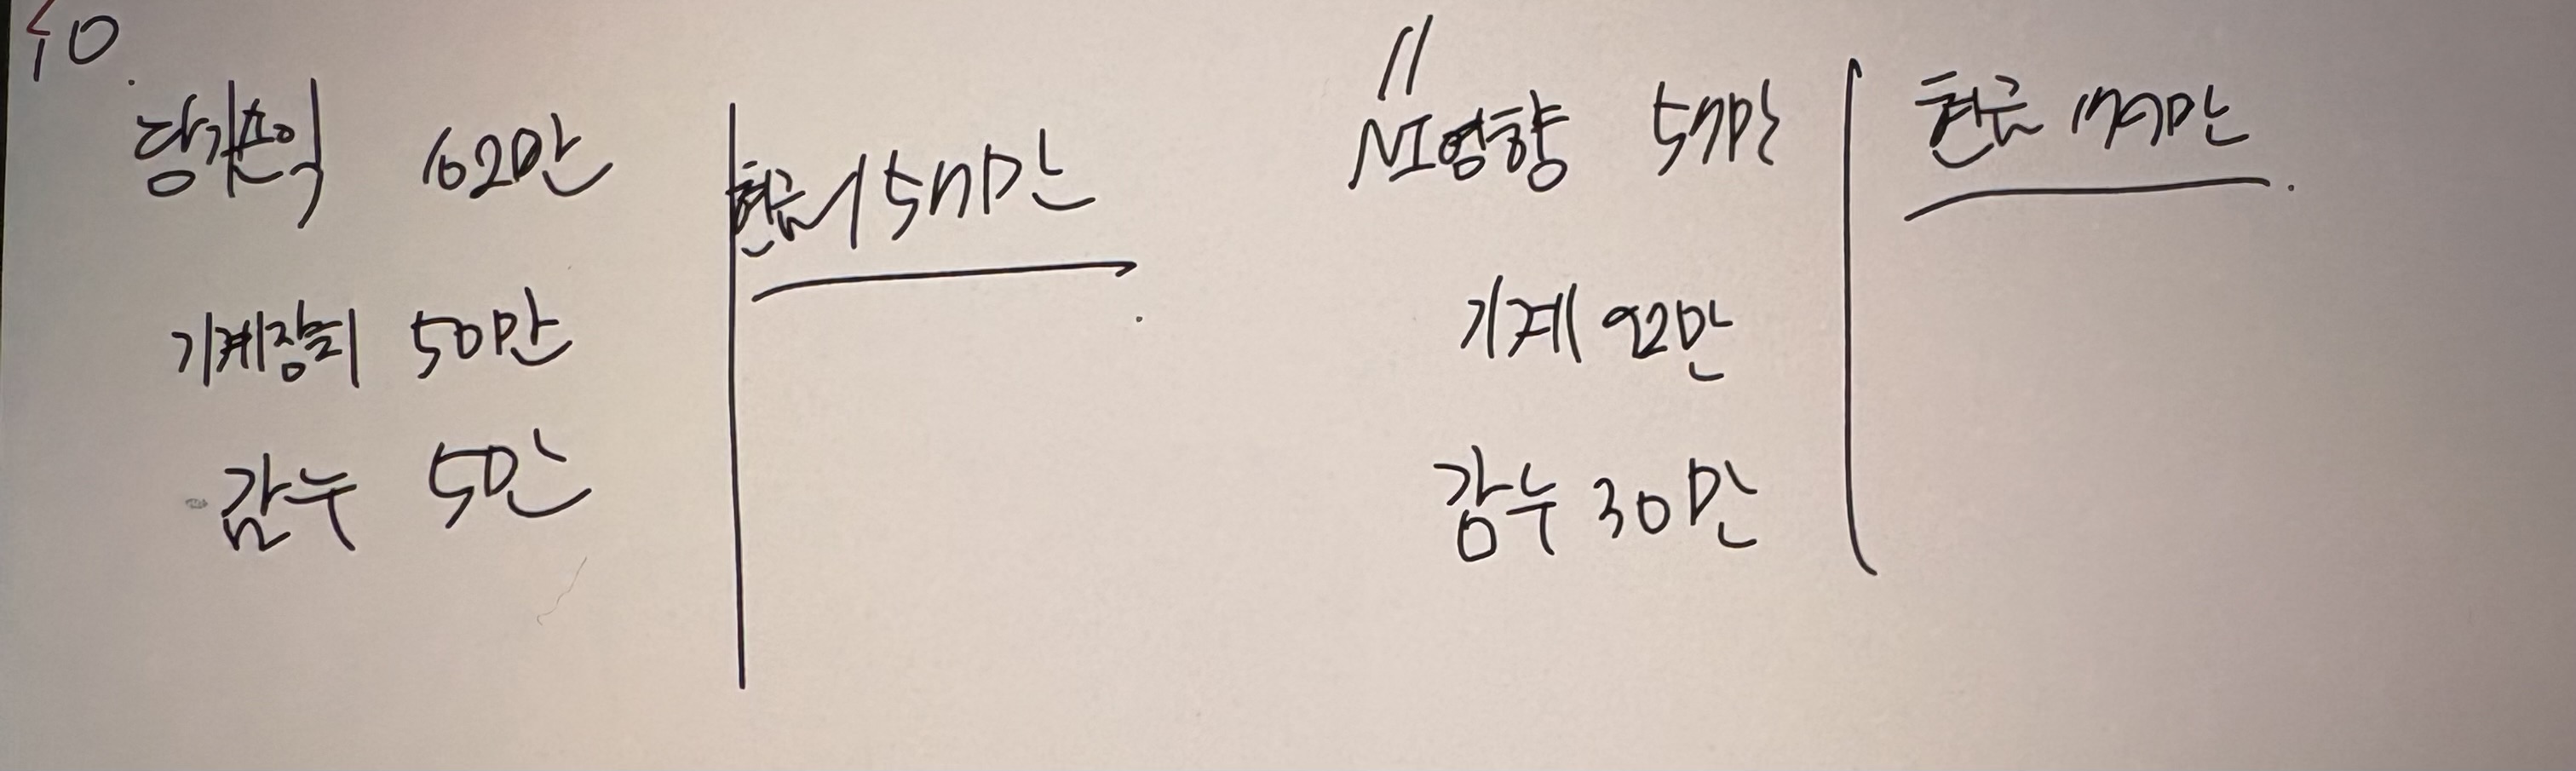 10.
당기순익 162만
현금 157만
기계장비 50만
감누 5만
11
NI영향 57만
현금 179만
기계 92만
감누 30만